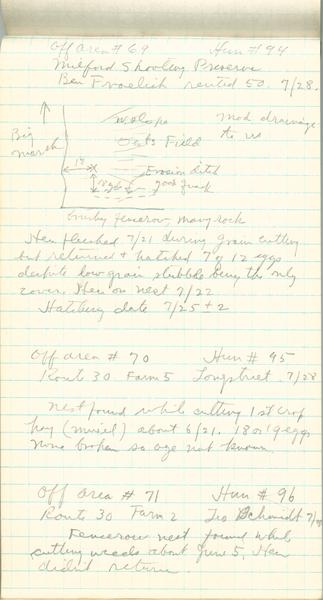 Off area # 69 Hun # 94
Milford Shooting Preserve
Ben Froelich rented 50. 7/28.
Mod drainage
to us
Big
marsh
Oats Field
Erosion ditch
good
brushy fencerow, many rock
Hen flushed 7/21 during grain cutting
but returned + hatched 7 of 12 eggs
despite low grain stubble being the only
cover. Hen on nest 7/22
Hatching date 7/25 ± 2
Off area # 70 Hun # 95
Route 30 Farm 5 Longstreet 7/28
Nest found while cutting 1st crop
hay (mixed) about 6/21. 18 or 19 eggs
none broken so age not known.
Off area # 71 Hun # 96
Route 30 Farm 2 Leo Schmidt
Fencerow nest found while
cutting weeds about June 5. Hen
didn't return.